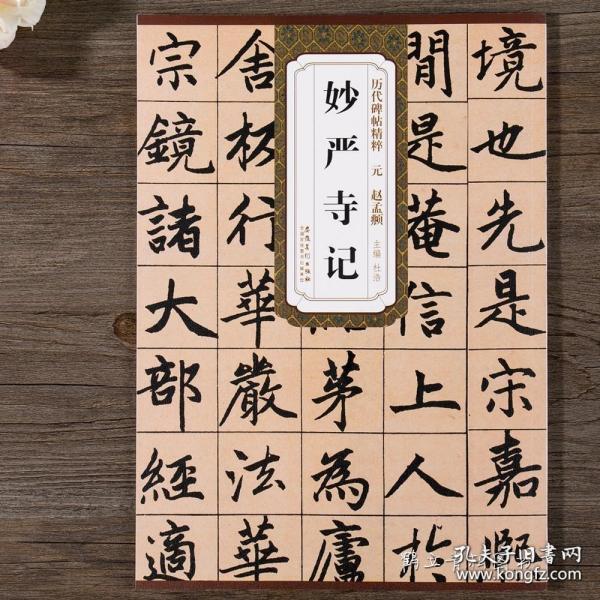 境也先是宋嘉熙
閒是菴信上人於
茅為廬
舍板行華嚴法華
宗鏡諸大部經適
历代碑帖精粹 元 赵孟頫
妙严寺记
主编 杜浩
安徽美术出版社
孔夫子旧书网
www.kongfz.com